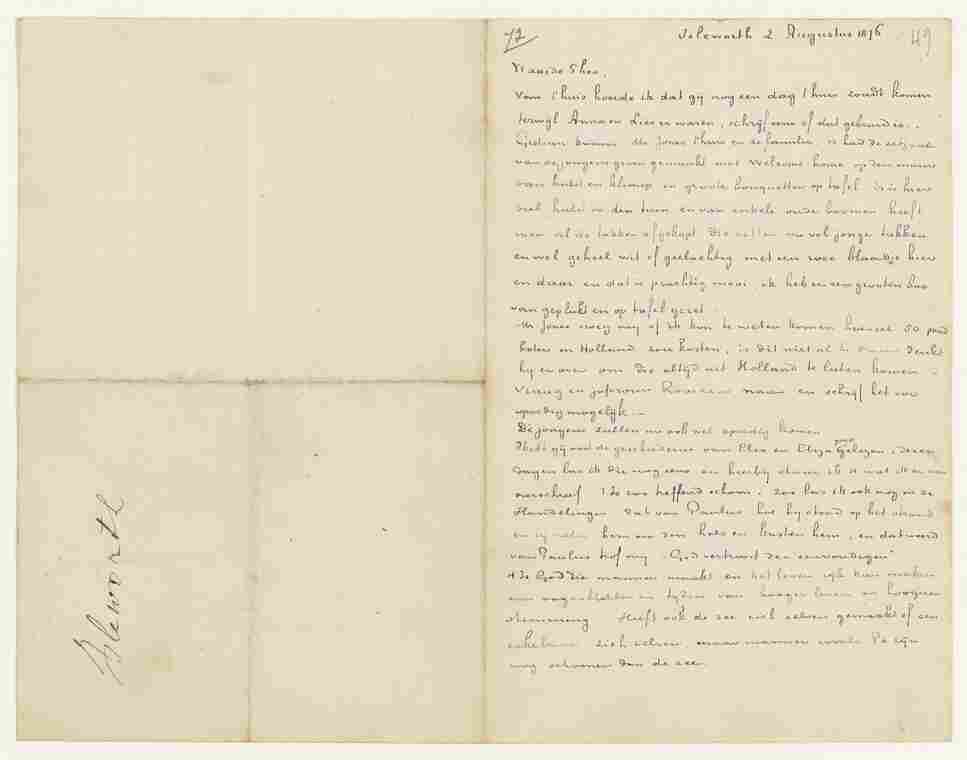 Isleworth
72
Isleworth 2 Augustus 1876
49
Waarde Theo,
Van t'huis hoorde ik dat gij nog een dag t'huis zoudt komen
terwijl Anna en Lies er waren, schrijf eens of dat gebeurd is.
Gisteren kwamen Mr Jones thuis en de familie, ik had de eetzaal
van de jongens groen gemaakt met Welcome home op den muur
van hulst en klimop en groote bouquetten op tafel. Er is hier
veel hulst in den tuin en van enkele oude boomen heeft
men al de takken afgekapt. Die zitten nu vol jonge takken
en wel geheel wit of geelachtig met een rose blaadje hier
en daar en dat is prachtig mooi, ik heb er een grooten bos
van geplukt en op tafel gezet.
Mr Jones vroeg mij of ik kon te weten komen hoeveel 50 pond
boter in Holland zou kosten, is dit niet al te
hij er over om die altijd uit Holland te laten komen.
Vraag en juffrouw Roos er naar en schrijf het zoo
spoedig mogelijk.
De jongens zullen nu ook wel spoedig komen
Hebt gij ooit de geschiedenis van Elia en Eliza gelezen, dezer
dagen las ik die nog eens en hierbij
overschreef. Het is zoo treffend schoon, zoo las ik ook nog in de
Handelingen dat van Paulus hoe hij stond op het strand
en zij vielen hem om den hals en kusten hem, en dat woord
van Paulus trof mij „God vertroost den eenvoudigen”
Het is God die mannen maakt en het leven rijk kan maken
aan oogenblikken en tijden van hooger leven en hoogere
stemming. Heeft ook de zee zich zelven gemaakt of een
eikeboom zich zelven, maar mannen zooals Pa zijn
nog schooner dan de zee.